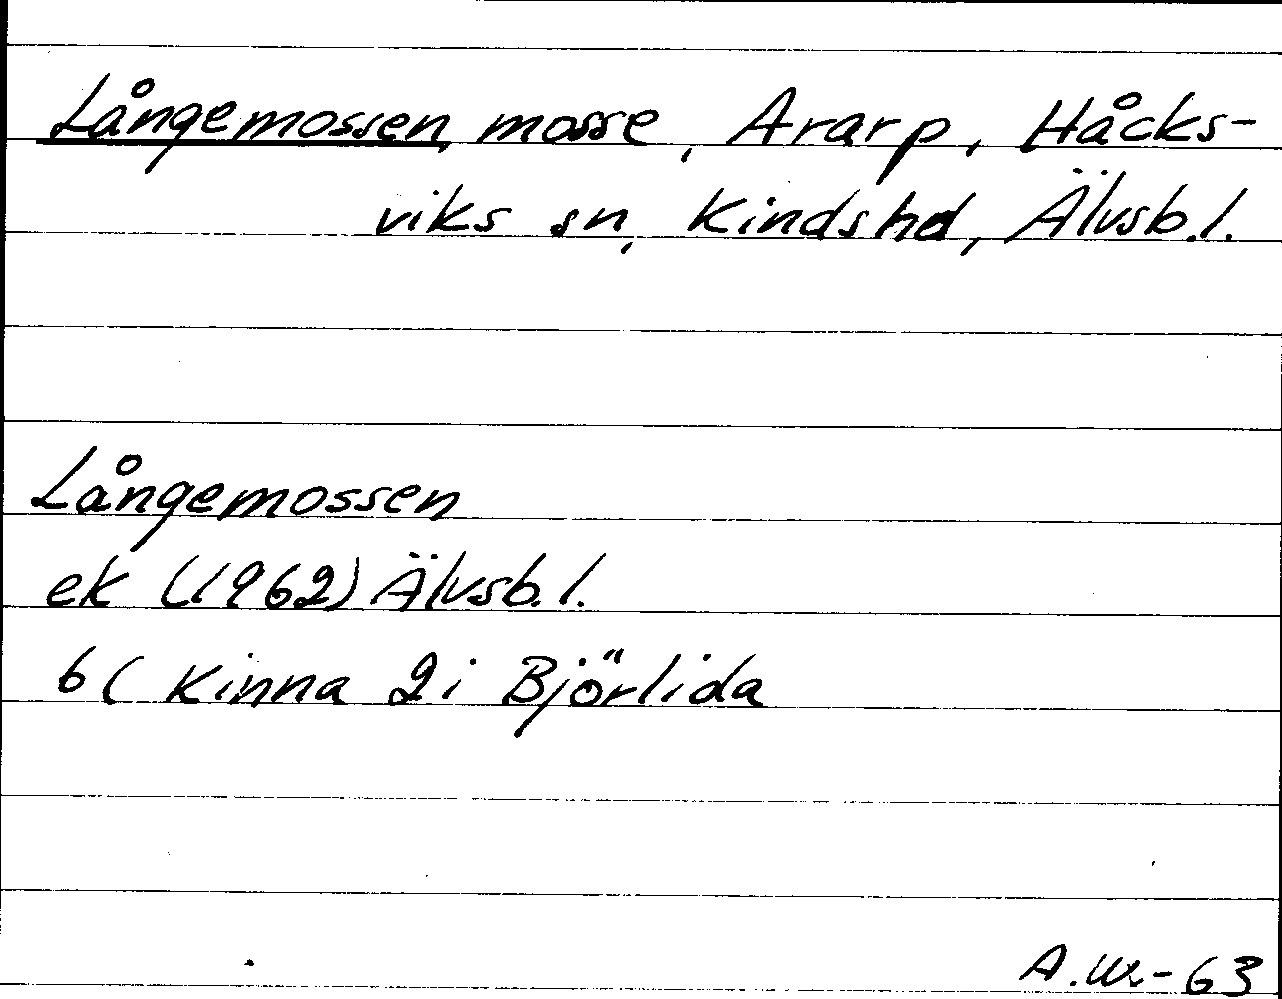 Långemossen, mosse, Ararp, Håcks-
viks sn, Kinds hd, Älvsb.l.
Långemossen
ek (1962) Älvsb.l.
6C Kinna 2i Björlida
A.W.-63